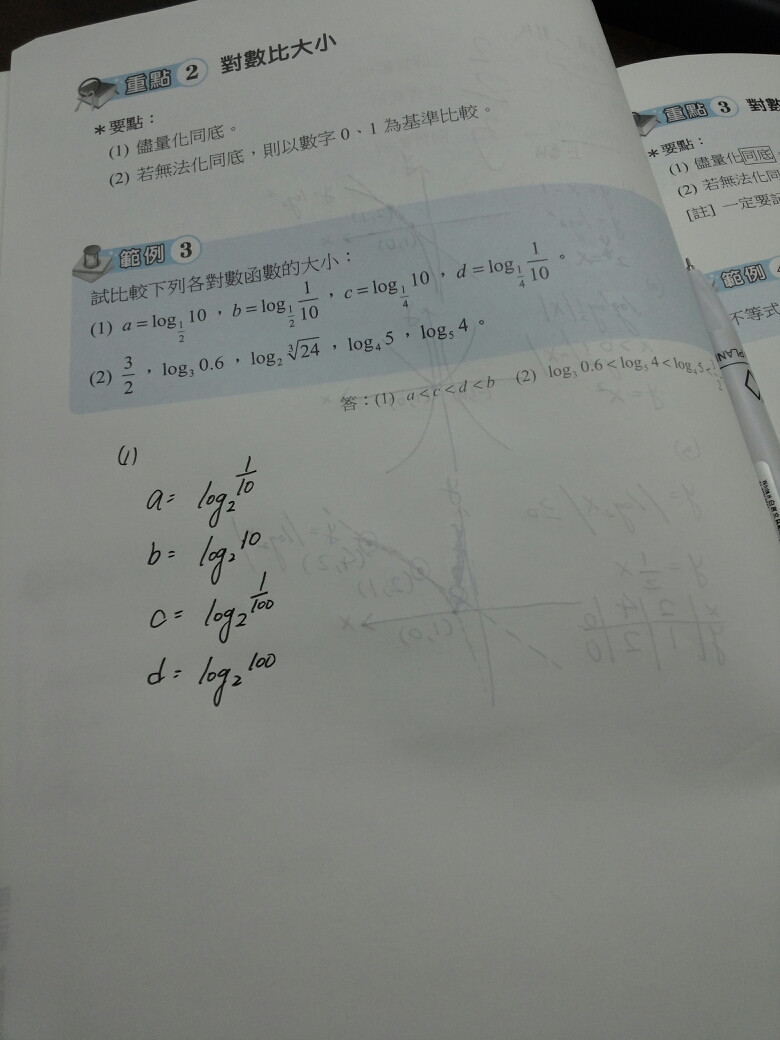 重點 2 對數比大小
＊要點：
(1) 儘量化同底。
(2) 若無法化同底，則以數字 0、1 為基準比較。
範例 3
試比較下列各對數函數的大小：
(1) a = log_{1/2} 10，b = log_{1/2} 1/10，c = log_{1/4} 10，d = log_{1/4} 1/10。
(2) 3/2，log₃ 0.6，log₂ ∛24，log₄ 5，log₅ 4。
答：(1) a < c < d < b (2) log₃ 0.6 < log₅ 4 < log₄ 5 <
(1)
a = log₂ 1/10
b = log₂ 10
c = log₂ 1/100
d = log₂ 100
重點 3 對數
＊要點：
(1) 儘量化同底
(2) 若無法化同
[註] 一定要
範例
不等式
PLAN